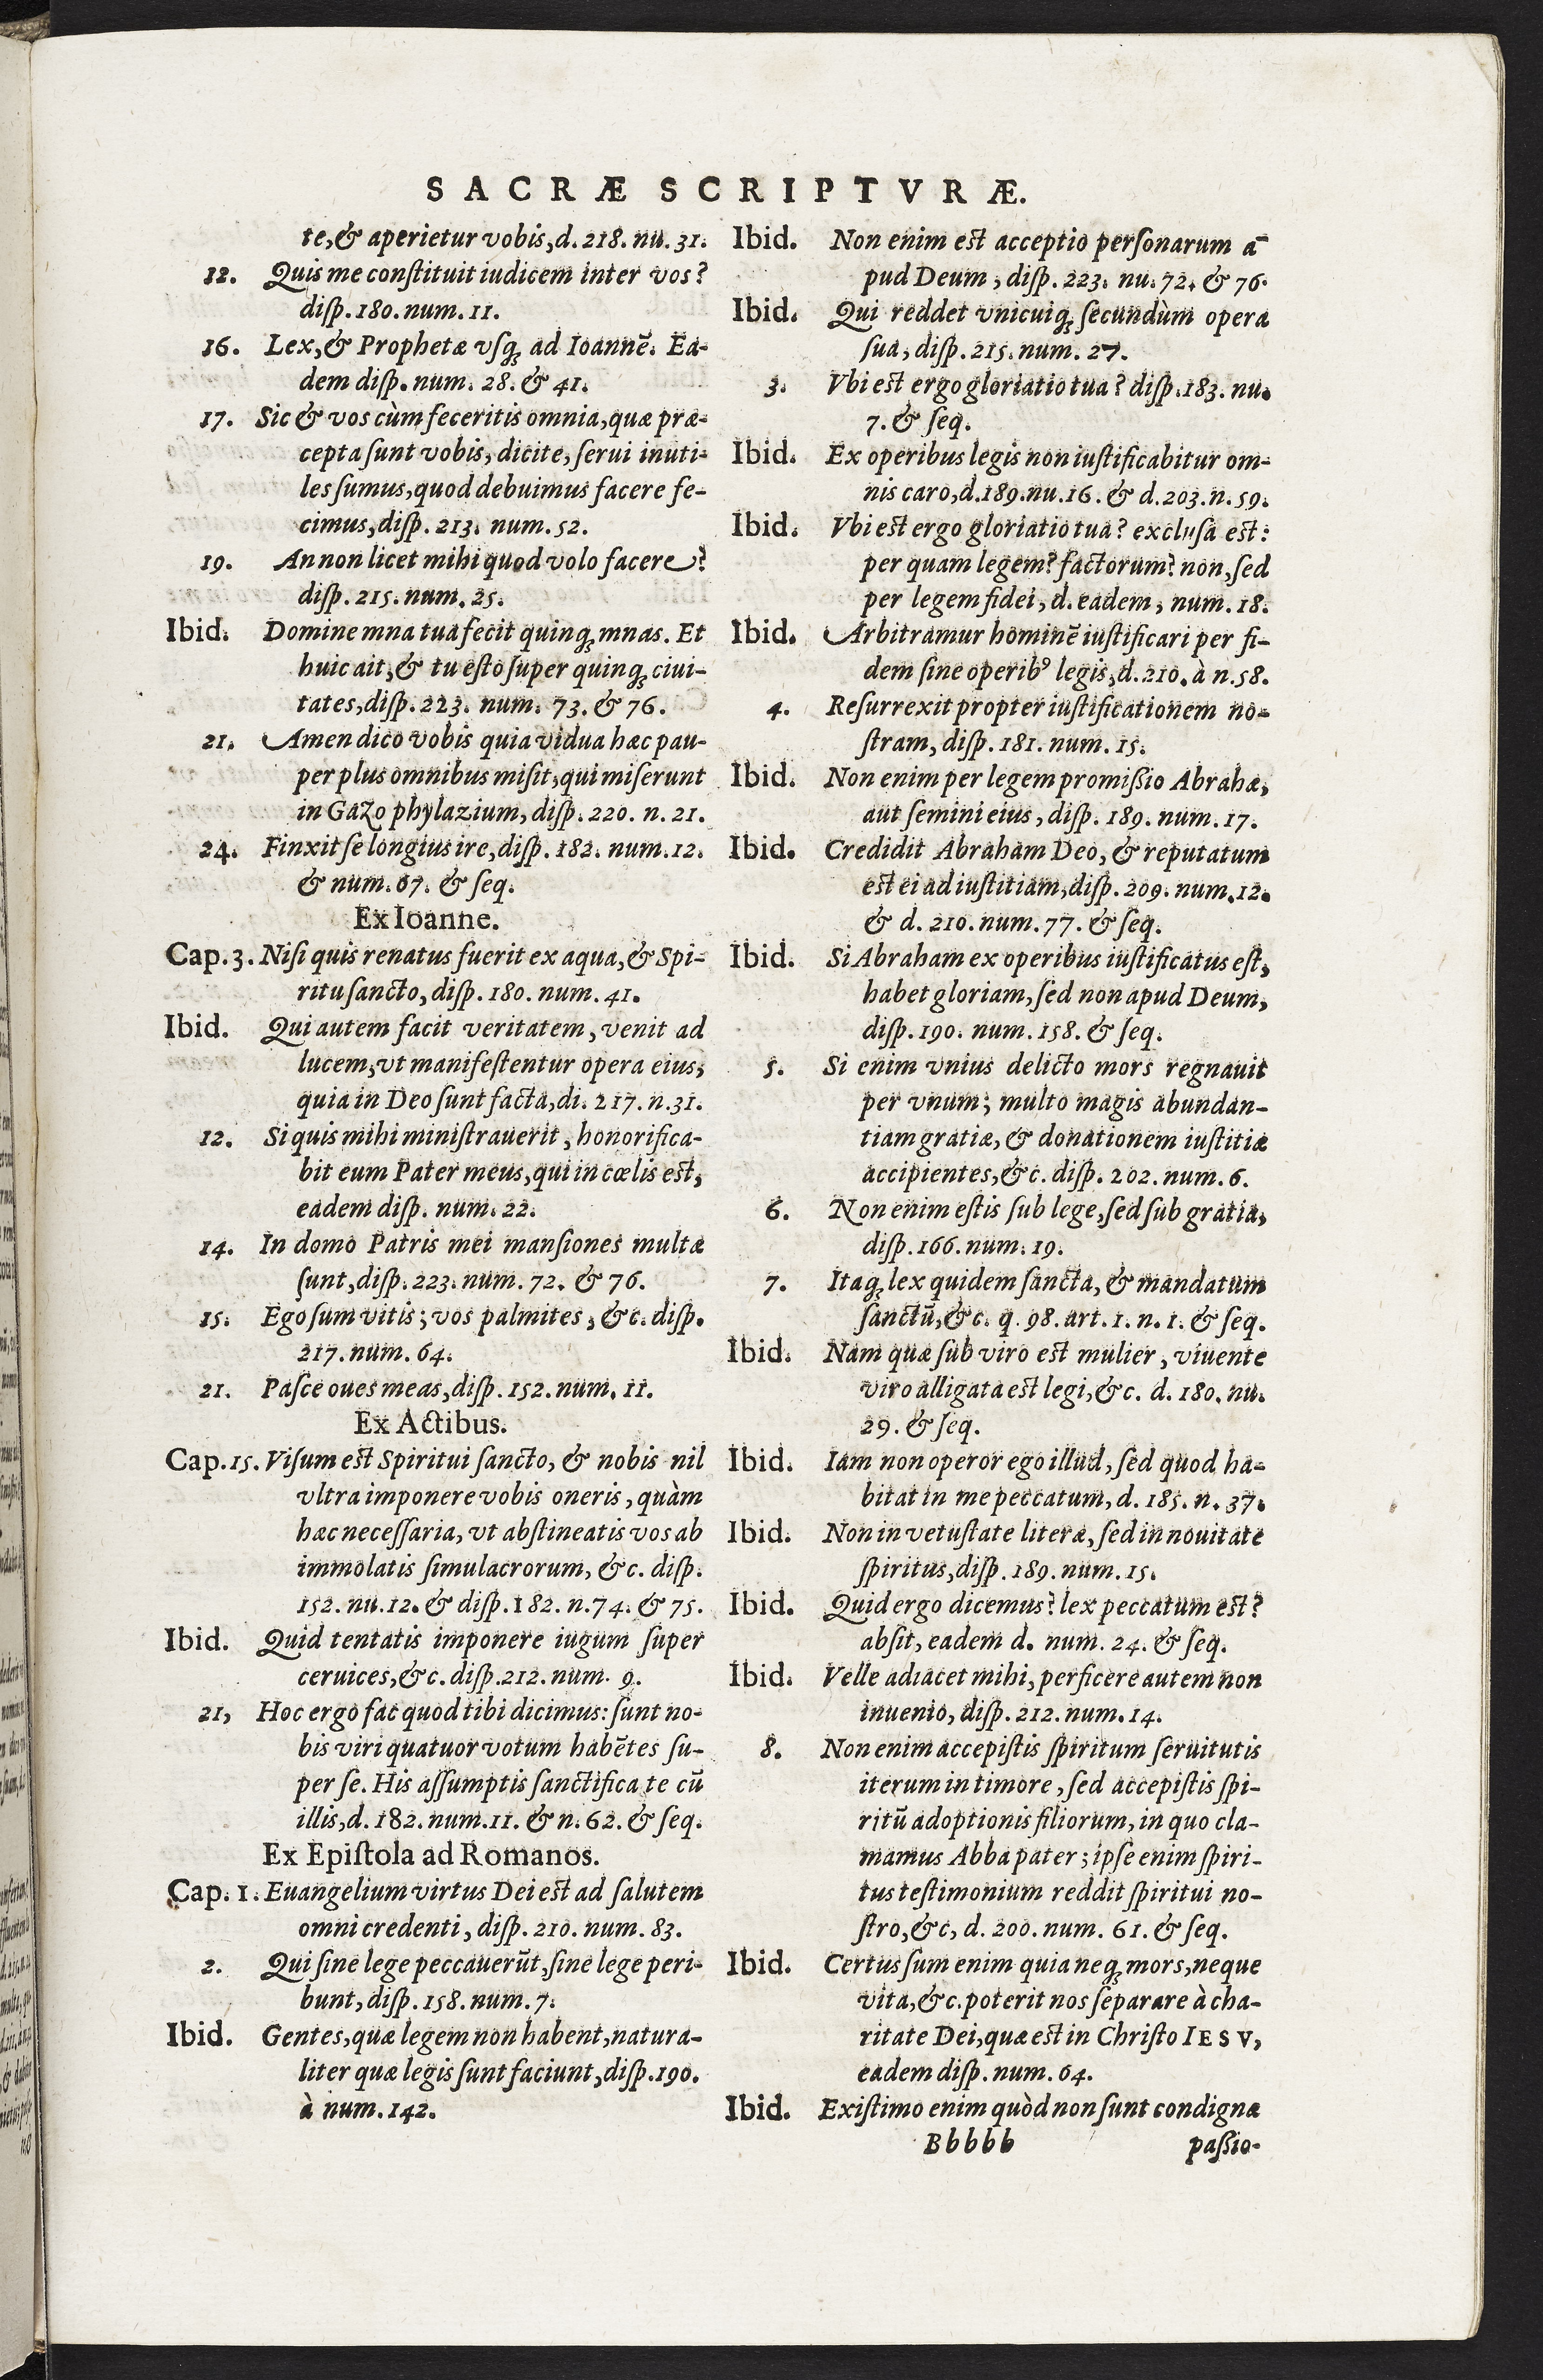 SACRÆ SCRIPTVRÆ.
te,& aperietur vobis,d.218.nu.31.
12. Quis me conſtituit iudicem inter vos?
diſp.180.num.11.
16. Lex,& Prophetæ vſq; ad Ioannē. Ea-
dem diſp.num. 28.& 41.
17. Sic & vos cùm feceritis omnia,quæ præ-
cepta ſunt vobis, dicite, ſerui inuti-
les ſumus,quod debuimus facere fe-
cimus,diſp.213. num.52.
19. An non licet mihi quod volo facere?
diſp.215.num.25.
Ibid. Domine mna tua fecit quinq; mnas. Et
huic ait,& tu eſto ſuper quinq; ciui-
tates,diſp.223. num. 73.& 76.
21. Amen dico vobis quia vidua hæc pau-
per plus omnibus miſit,qui miſerunt
in Gazophylazium, diſp.220. n.21.
24. Finxit ſe longius ire,diſp.182. num.12.
& num.67. & ſeq.
Ex Ioanne.
Cap.3. Niſi quis renatus fuerit ex aqua,& Spi-
ritu ſancto, diſp.180. num.41.
Ibid. Qui autem facit veritatem, venit ad
lucem,vt manifeſtentur opera eius,
quia in Deo ſunt facta,di.217.n.31.
12. Si quis mihi miniſtrauerit, honorifica-
bit eum Pater meus,qui in cœlis est,
eadem diſp. num.22.
14. In domo Patris mei manſiones multæ
ſunt,diſp.223.num.72. & 76.
15. Ego ſum vitis; vos palmites, &c.diſp.
217.num.64.
21. Paſce oues meas,diſp.152.num.11.
Ex Actibus.
Cap.15. Viſum est Spiritui ſancto, & nobis nil
vltra imponere vobis oneris, quàm
hæc neceſſaria, vt abſtineatis vos ab
immolatis ſimulacrorum, &c. diſp.
152. nu.12.& diſp.182. n.74.& 75.
Ibid. Quid tentatis imponere iugum ſuper
ceruices,&c.diſp.212.num. 9.
21, Hoc ergo fac quod tibi dicimus: ſunt no-
bis viri quatuor votum habētes ſu-
per ſe. His aſſumptis ſanctifica te cū
illis,d.182.num.11. & n.62.& ſeq.
Ex Epiſtola ad Romanos.
Cap.1. Euangelium virtus Dei est ad ſalutem
omni credenti, diſp.210.num.83.
2. Qui ſine lege peccauerūt,ſine lege peri-
bunt,diſp.158.num.7.
Ibid. Gentes,quæ legem non habent,natura-
liter quæ legis ſunt faciunt,diſp.190.
à num.142.
Ibid. Non enim est acceptio perſonarum a-
pud Deum, diſp.223. nu.72. & 76.
Ibid. Qui reddet vnicuiq; ſecundùm opera
ſua, diſp.215.num.27.
3. Vbi est ergo gloriatio tua? diſp.183. nu.
7.& ſeq.
Ibid. Ex operibus legis non iuſtificabitur om-
nis caro,d.189.nu.16.& d.203.n.59.
Ibid. Vbi est ergo gloriatio tua? excluſa est:
per quam legem? factorum? non,ſed
per legem fidei, d.eadem, num.18.
Ibid. Arbitramur hominē iuſtificari per fi-
dem ſine operibꝰ legis,d.210.à n.58.
4. Reſurrexit propter iuſtificationem no-
ſtram, diſp.181.num.15.
Ibid. Non enim per legem promißio Abrahæ,
aut ſemini eius, diſp.189.num.17.
Ibid. Credidit Abraham Deo,& reputatum
est ei ad iuſtitiam,diſp.209.num.12.
& d.210.num.77.& ſeq.
Ibid. Si Abraham ex operibus iuſtificatus eſt,
habet gloriam,ſed non apud Deum,
diſp.190. num.158.& ſeq.
5. Si enim vnius delicto mors regnauit
per vnum; multo magis abundan-
tiam gratiæ,& donationem iuſtitiæ
accipientes,&c. diſp.202.num.6.
6. Non enim eſtis ſub lege,ſed ſub gratia,
diſp.166.num.19.
7. Itaq; lex quidem ſancta,& mandatum
ſanctū,&c. q.98.art.1.n.1.& ſeq.
Ibid. Nam quæ ſub viro est mulier, viuente
viro alligata est legi,&c. d.180.nu.
29.& ſeq.
Ibid. Iam non operor ego illud, ſed quod ha-
bitat in me peccatum, d.185.n.37.
Ibid. Non in vetuſtate literæ,ſed in nouitate
ſpiritus,diſp.189.num.15.
Ibid. Quid ergo dicemus? lex peccatum est?
abſit, eadem d. num.24.& ſeq.
Ibid. Velle adiacet mihi, perficere autem non
inuenio, diſp.212.num.14.
8. Non enim accepiſtis ſpiritum ſeruitutis
iterum in timore, ſed accepiſtis ſpi-
ritū adoptionis filiorum, in quo cla-
mamus Abba pater; ipſe enim ſpiri-
tus teſtimonium reddit ſpiritui no-
ſtro,&c, d.200.num.61.& ſeq.
Ibid. Certus ſum enim quia neq; mors,neque
vita,&c.poterit nos ſeparare à cha-
ritate Dei,quæ est in Chriſto IESV,
eadem diſp.num.64.
Ibid. Exiſtimo enim quòd non ſunt condignæ
Bbbbb paßio-